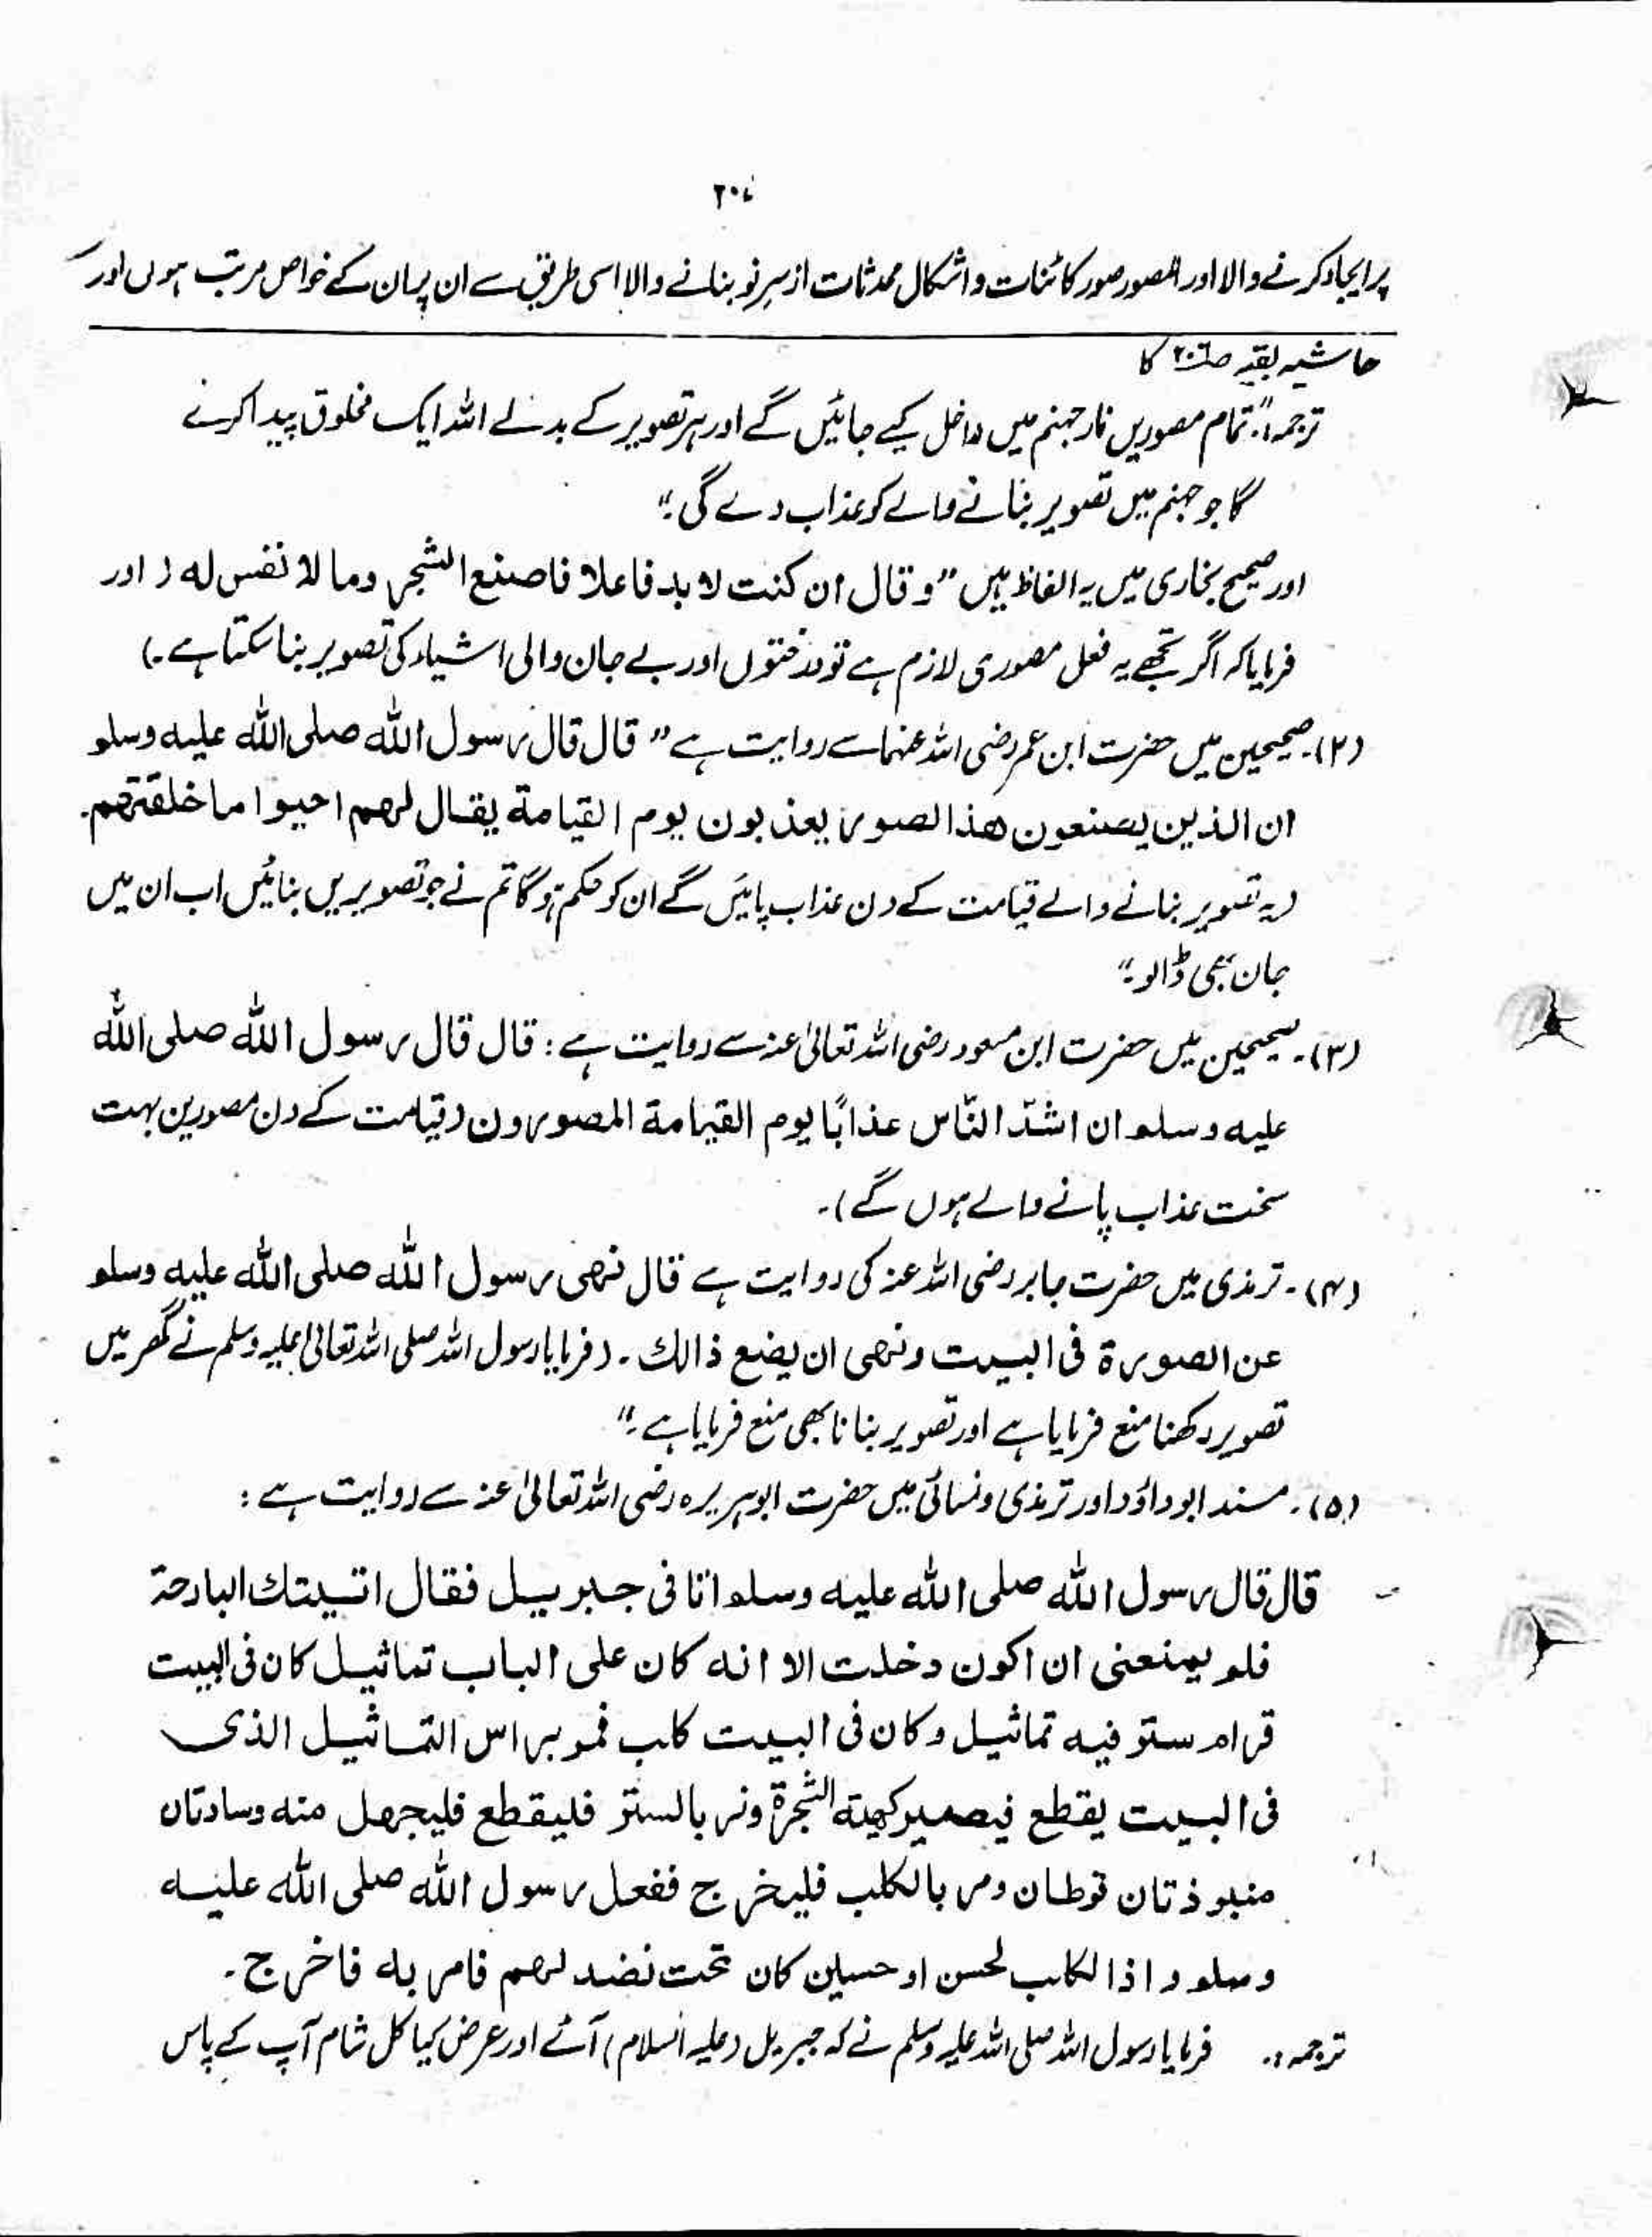 ۲۰۷
پر ایجاد کرنے والا اور المصور صور کائنات و اشکال محدثات از سرِ نو بنانے والا اسی طریق سے ان پر ان کے خواص مرتب ہوں اور
حاشیہ بقیہ ص۲۰۶ کا
ترجمہ:۔ "تمام مصوریں نار جہنم میں داخل کیے جائیں گے اور ہر تصویر کے بدلے اللہ ایک مخلوق پیدا کرنے
گا جو جہنم میں تصویر بنانے والے کو عذاب دے گی۔"
اور صحیح بخاری میں یہ الفاظ ہیں "و قال ان کنت لا بد فاعلا فاصنع الشجر وما لا نفس له ( اور
فرمایا کہ اگر تجھے یہ فعل مصوری لازم ہے تو درختوں اور بے جان والی اشیاء کی تصویر بنا سکتا ہے۔)
(۲)۔ صحیحین میں حضرت ابن عمر رضی اللہ عنہما سے روایت ہے " قال قال رسول الله صلى الله عليه وسلم
ان الذين يصنعون هذا الصور يعذبون يوم القيامة يقال لهم احيوا ما خلقتهم۔
(یہ تصویر بنانے والے قیامت کے دن عذاب پائیں گے ان کو حکم ہوگا تم نے جو تصویریں بنائیں اب ان میں
جان بھی ڈالو۔"
(۳)۔ صحیحین میں حضرت ابن مسعود رضی اللہ تعالیٰ عنہ سے روایت ہے : قال قال رسول الله صلى الله
عليه وسلم ان اشدّ النّاس عذابًا يوم القيامة المصورون (قیامت کے دن مصورین بہت
سخت عذاب پانے والے ہوں گے)۔
(۴)۔ ترمذی میں حضرت جابر رضی اللہ عنہ کی روایت ہے قال نهى رسول الله صلى الله عليه وسلم
عن الصورة فى البيت ونهى ان يضع ذالك۔ (فرمایا رسول اللہ صلی اللہ تعالیٰ علیہ وسلم نے گھر میں
تصویر رکھنا منع فرمایا ہے اور تصویر بنانا بھی منع فرمایا ہے۔"
(۵)۔ مسند ابو داؤد اور ترمذی و نسائی میں حضرت ابوہریرہ رضی اللہ تعالیٰ عنہ سے روایت ہے :
قال قال رسول الله صلى الله عليه وسلم اتانى جبريل فقال اتيتك البارحة
فلم يمنعنى ان اكون دخلت الا انه كان على الباب تماثيل كان فى البيت
قرام ستر فيه تماثيل وكان فى البيت كلب فمر براس التماثيل الذى
فى البيت يقطع فيصير كهيئة الشجرة ومر بالستر فليقطع فليجهل منه وسادتان
منبوذتان توطان ومر بالكلب فليخرج ففعل رسول الله صلى الله عليه
وسلم و اذا الكلب لحسن او حسين كان تحت نضد لهم فامر به فاخرج۔
ترجمہ:۔ فرمایا رسول اللہ صلی اللہ علیہ وسلم نے کہ جبریل (علیہ السلام) آئے اور عرض کیا کل شام آپ کے پاس